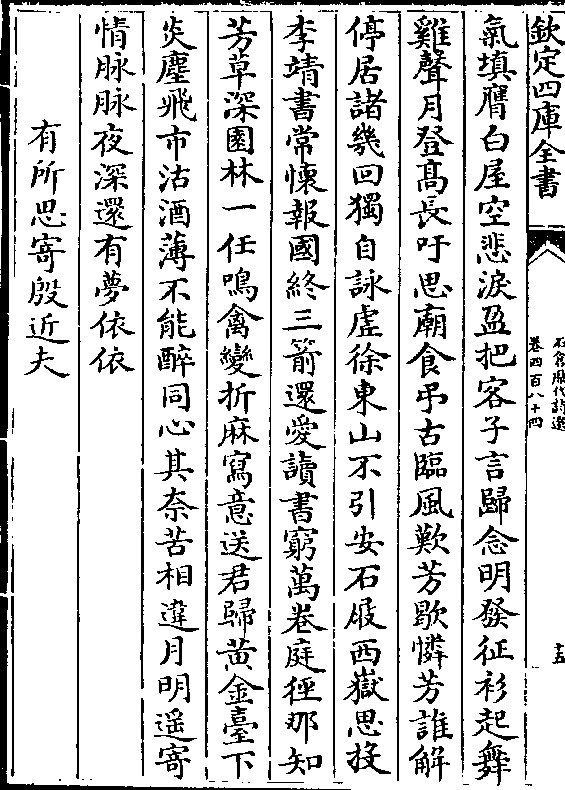 欽定四庫全書
石倉歷代詩選
卷四百八十四
十五
氣填膺白屋空悲淚盈把客子言歸念明發征衫起舞
雞聲月登髙長吁思廟食弔古臨風歎芳歇憐芳誰解
停居諸幾回獨自詠虚徐東山不引安石屐西嶽思投
李靖書常懷報國終三箭還愛讀書窮萬卷庭徑那知
芳草深園林一任鳴禽變折麻寫意送君歸黄金臺下
炎塵飛市沽酒薄不能醉同心其奈苦相違月明遥寄
情脉脉夜深還有夢依依
有所思寄殷近夫